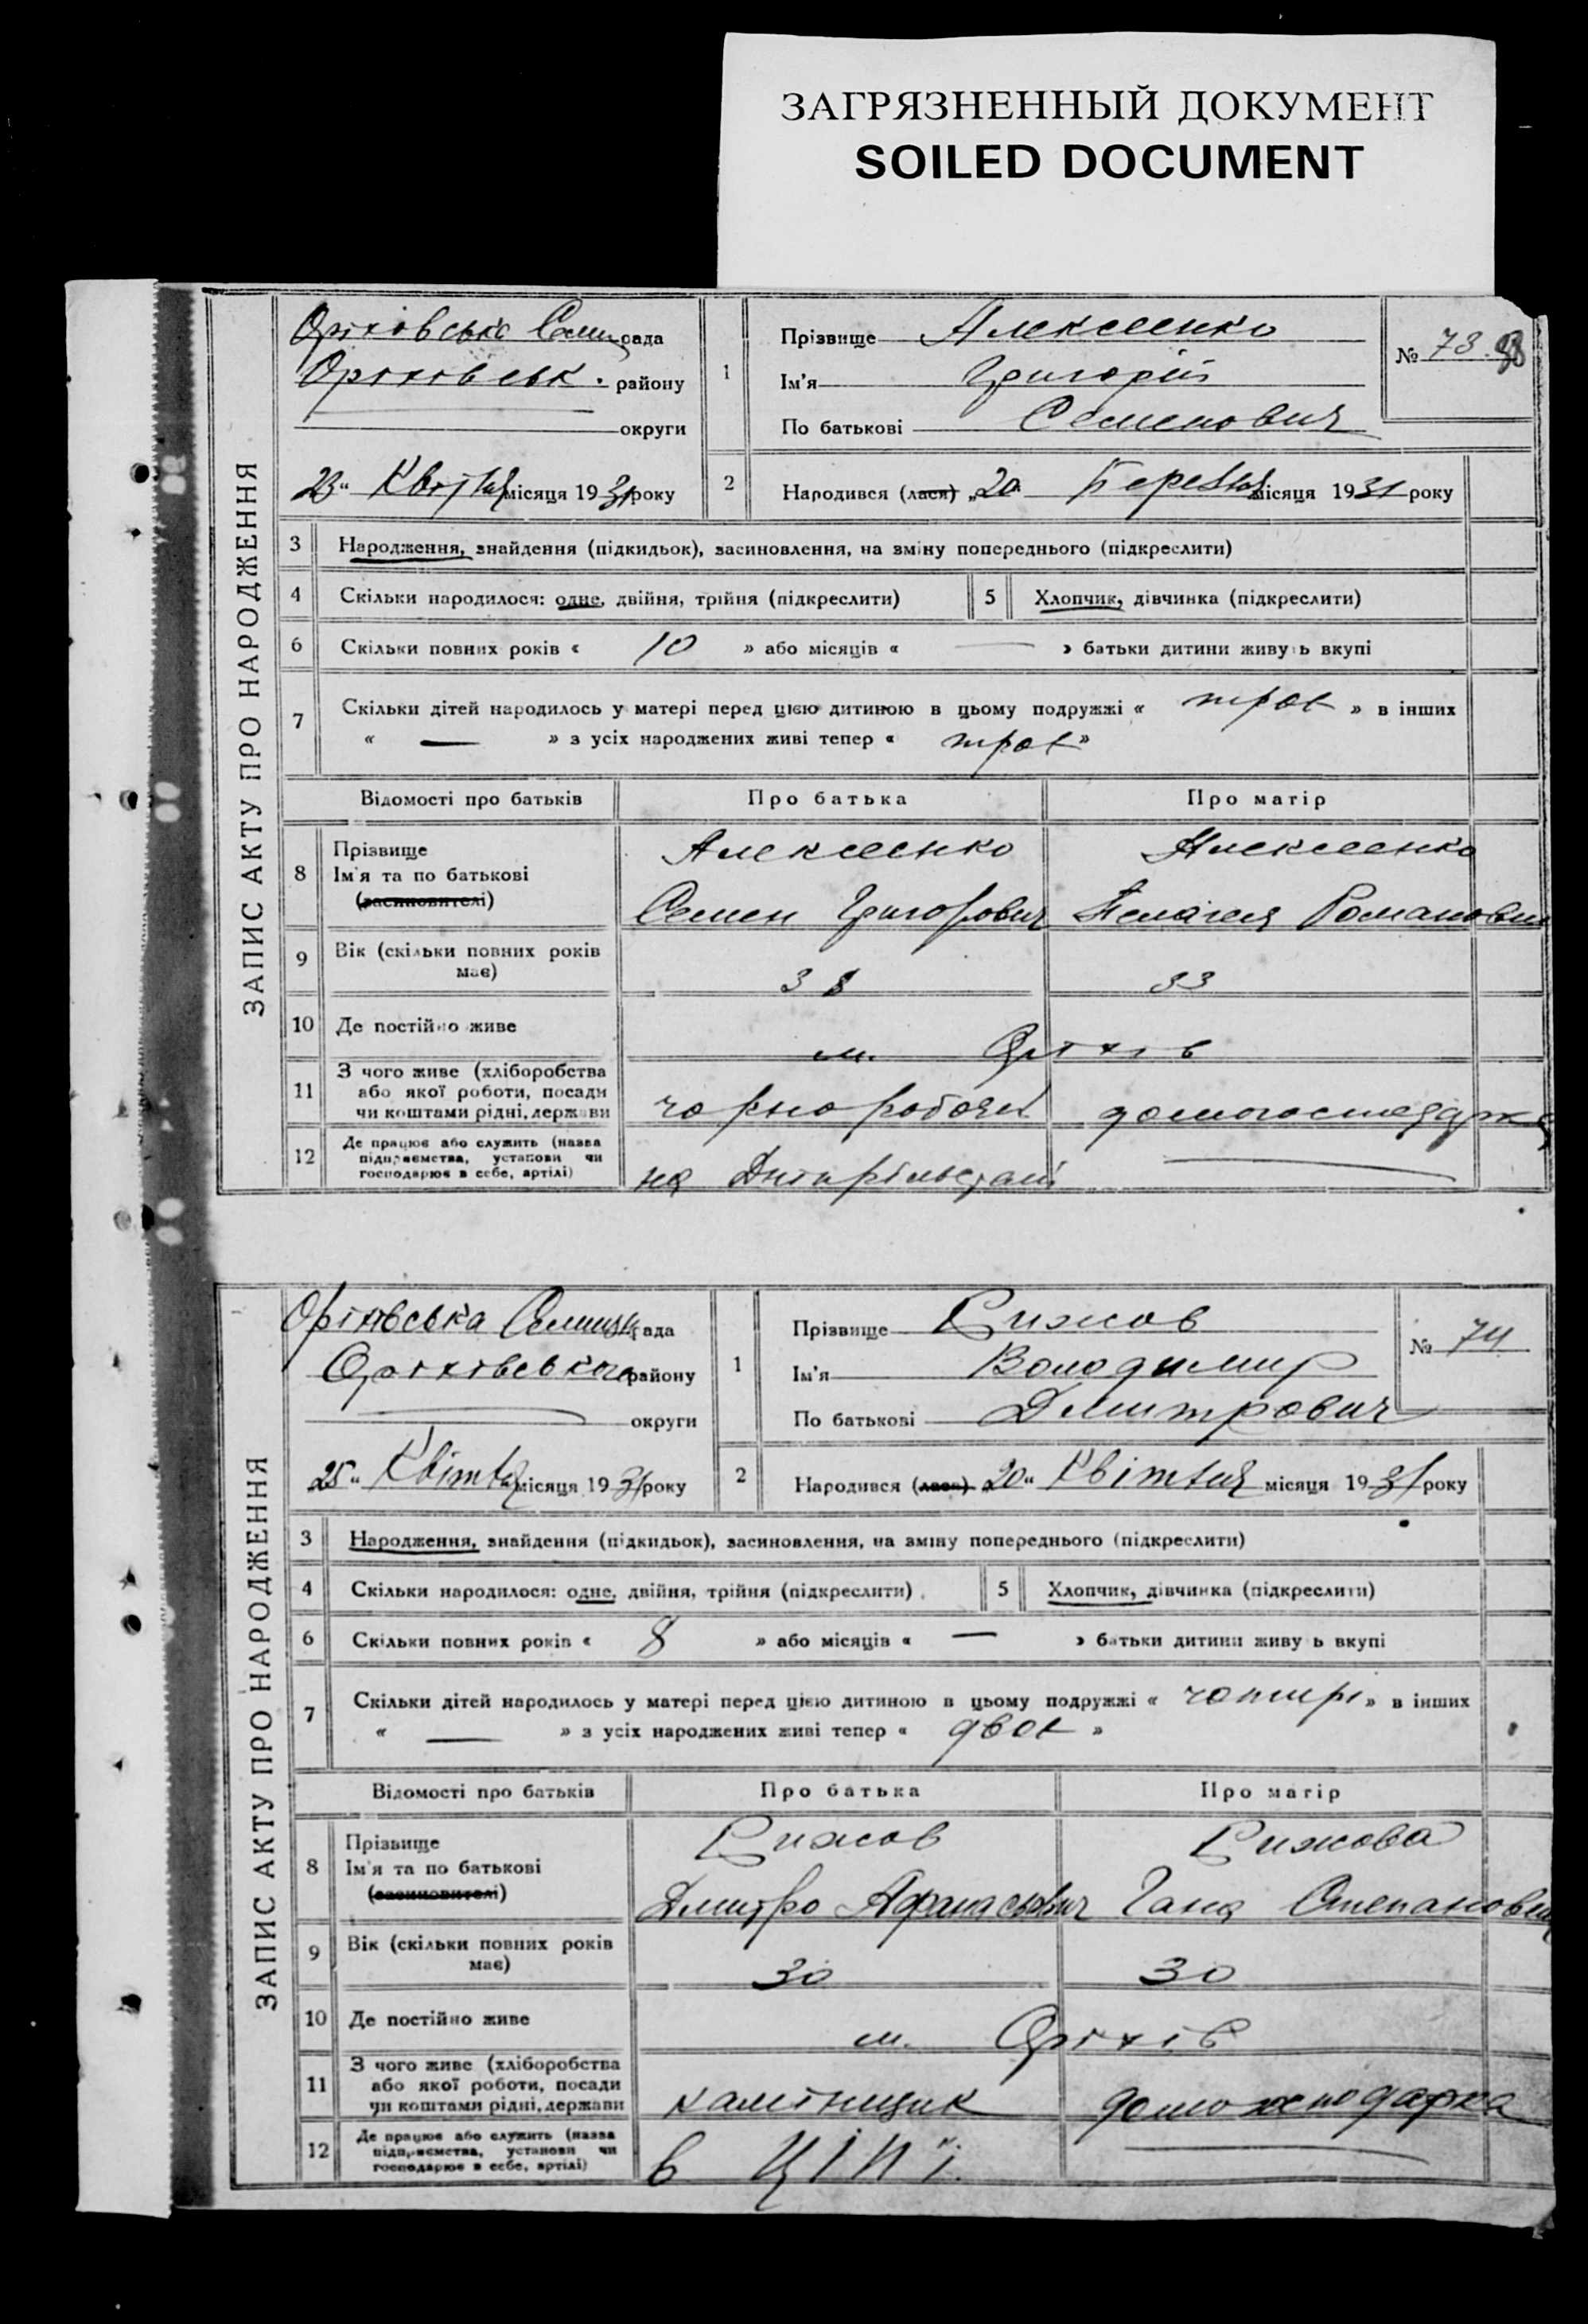 ЗАГРЯЗНЕННЫЙ ДОКУМЕНТ
SOILED DOCUMENT
ЗАПИС АКТУ ПРО НАРОДЖЕННЯ
Оріховська рада
Оріховськ. району
округи
23" Квітня місяця 1931 року
1
Прізвище Алексеенко
Ім'я Григорій
По батькові Семенович
№ 73
2
Народився (лася) „20" Березня місяця 1931 року
3 Народження, знайдення (підкидьок), засиновлення, на зміну попереднього (підкреслити)
4 Скільки народилося: одне, двійня, трійня (підкреслити) 5 Хлопчик, дівчинка (підкреслити)
6 Скільки повних років « 10 » або місяців « — » батьки дитини живуть вкупі
7 Скільки дітей народилось у матері перед цією дитиною в цьому подружжі « троє » в інших
« — » з усіх народжених живі тепер « троє »
Відомості про батьків Про батька Про матір
8 Прізвище Алексеенко Алексеенко
Ім'я та по батькові
(засиновителі) Семен Григорович Пелагея Романовна
9 Вік (скільки повних років має) 38 33
10 Де постійно живе м. Оріхів
11 З чого живе (хліборобства
або якої роботи, посади
чи коштами рідні, держави чорноробочий
12 Де працює або служить (назва
підприємства, установи чи
господарює в себе, артілі) на —
ЗАПИС АКТУ ПРО НАРОДЖЕННЯ
Оріхівська Селищн рада
Оріхівського району
округи
25" Квітня місяця 1931 року
1
Прізвище Рижов
Ім'я Володимир
По батькові Дмитрович
№ 74
2
Народився (лася) „20" Квітня місяця 1931 року
3 Народження, знайдення (підкидьок), засиновлення, на зміну попереднього (підкреслити)
4 Скільки народилося: одне, двійня, трійня (підкреслити) 5 Хлопчик, дівчинка (підкреслити)
6 Скільки повних років « 8 » або місяців « — » батьки дитини живуть вкупі
7 Скільки дітей народилось у матері перед цією дитиною в цьому подружжі « чотирі » в інших
« — » з усіх народжених живі тепер « двоє »
Відомості про батьків Про батька Про матір
8 Прізвище Рижов Рижова
Ім'я та по батькові
(засиновителі) Дмитро Афанасьович Гана Степановна
9 Вік (скільки повних років має) 30 30
10 Де постійно живе м. Оріхів
11 З чого живе (хліборобства
або якої роботи, посади
чи коштами рідні, держави камінщик домогосподарка
12 Де працює або служить (назва
підприємства, установи чи
господарює в себе, артілі) в —